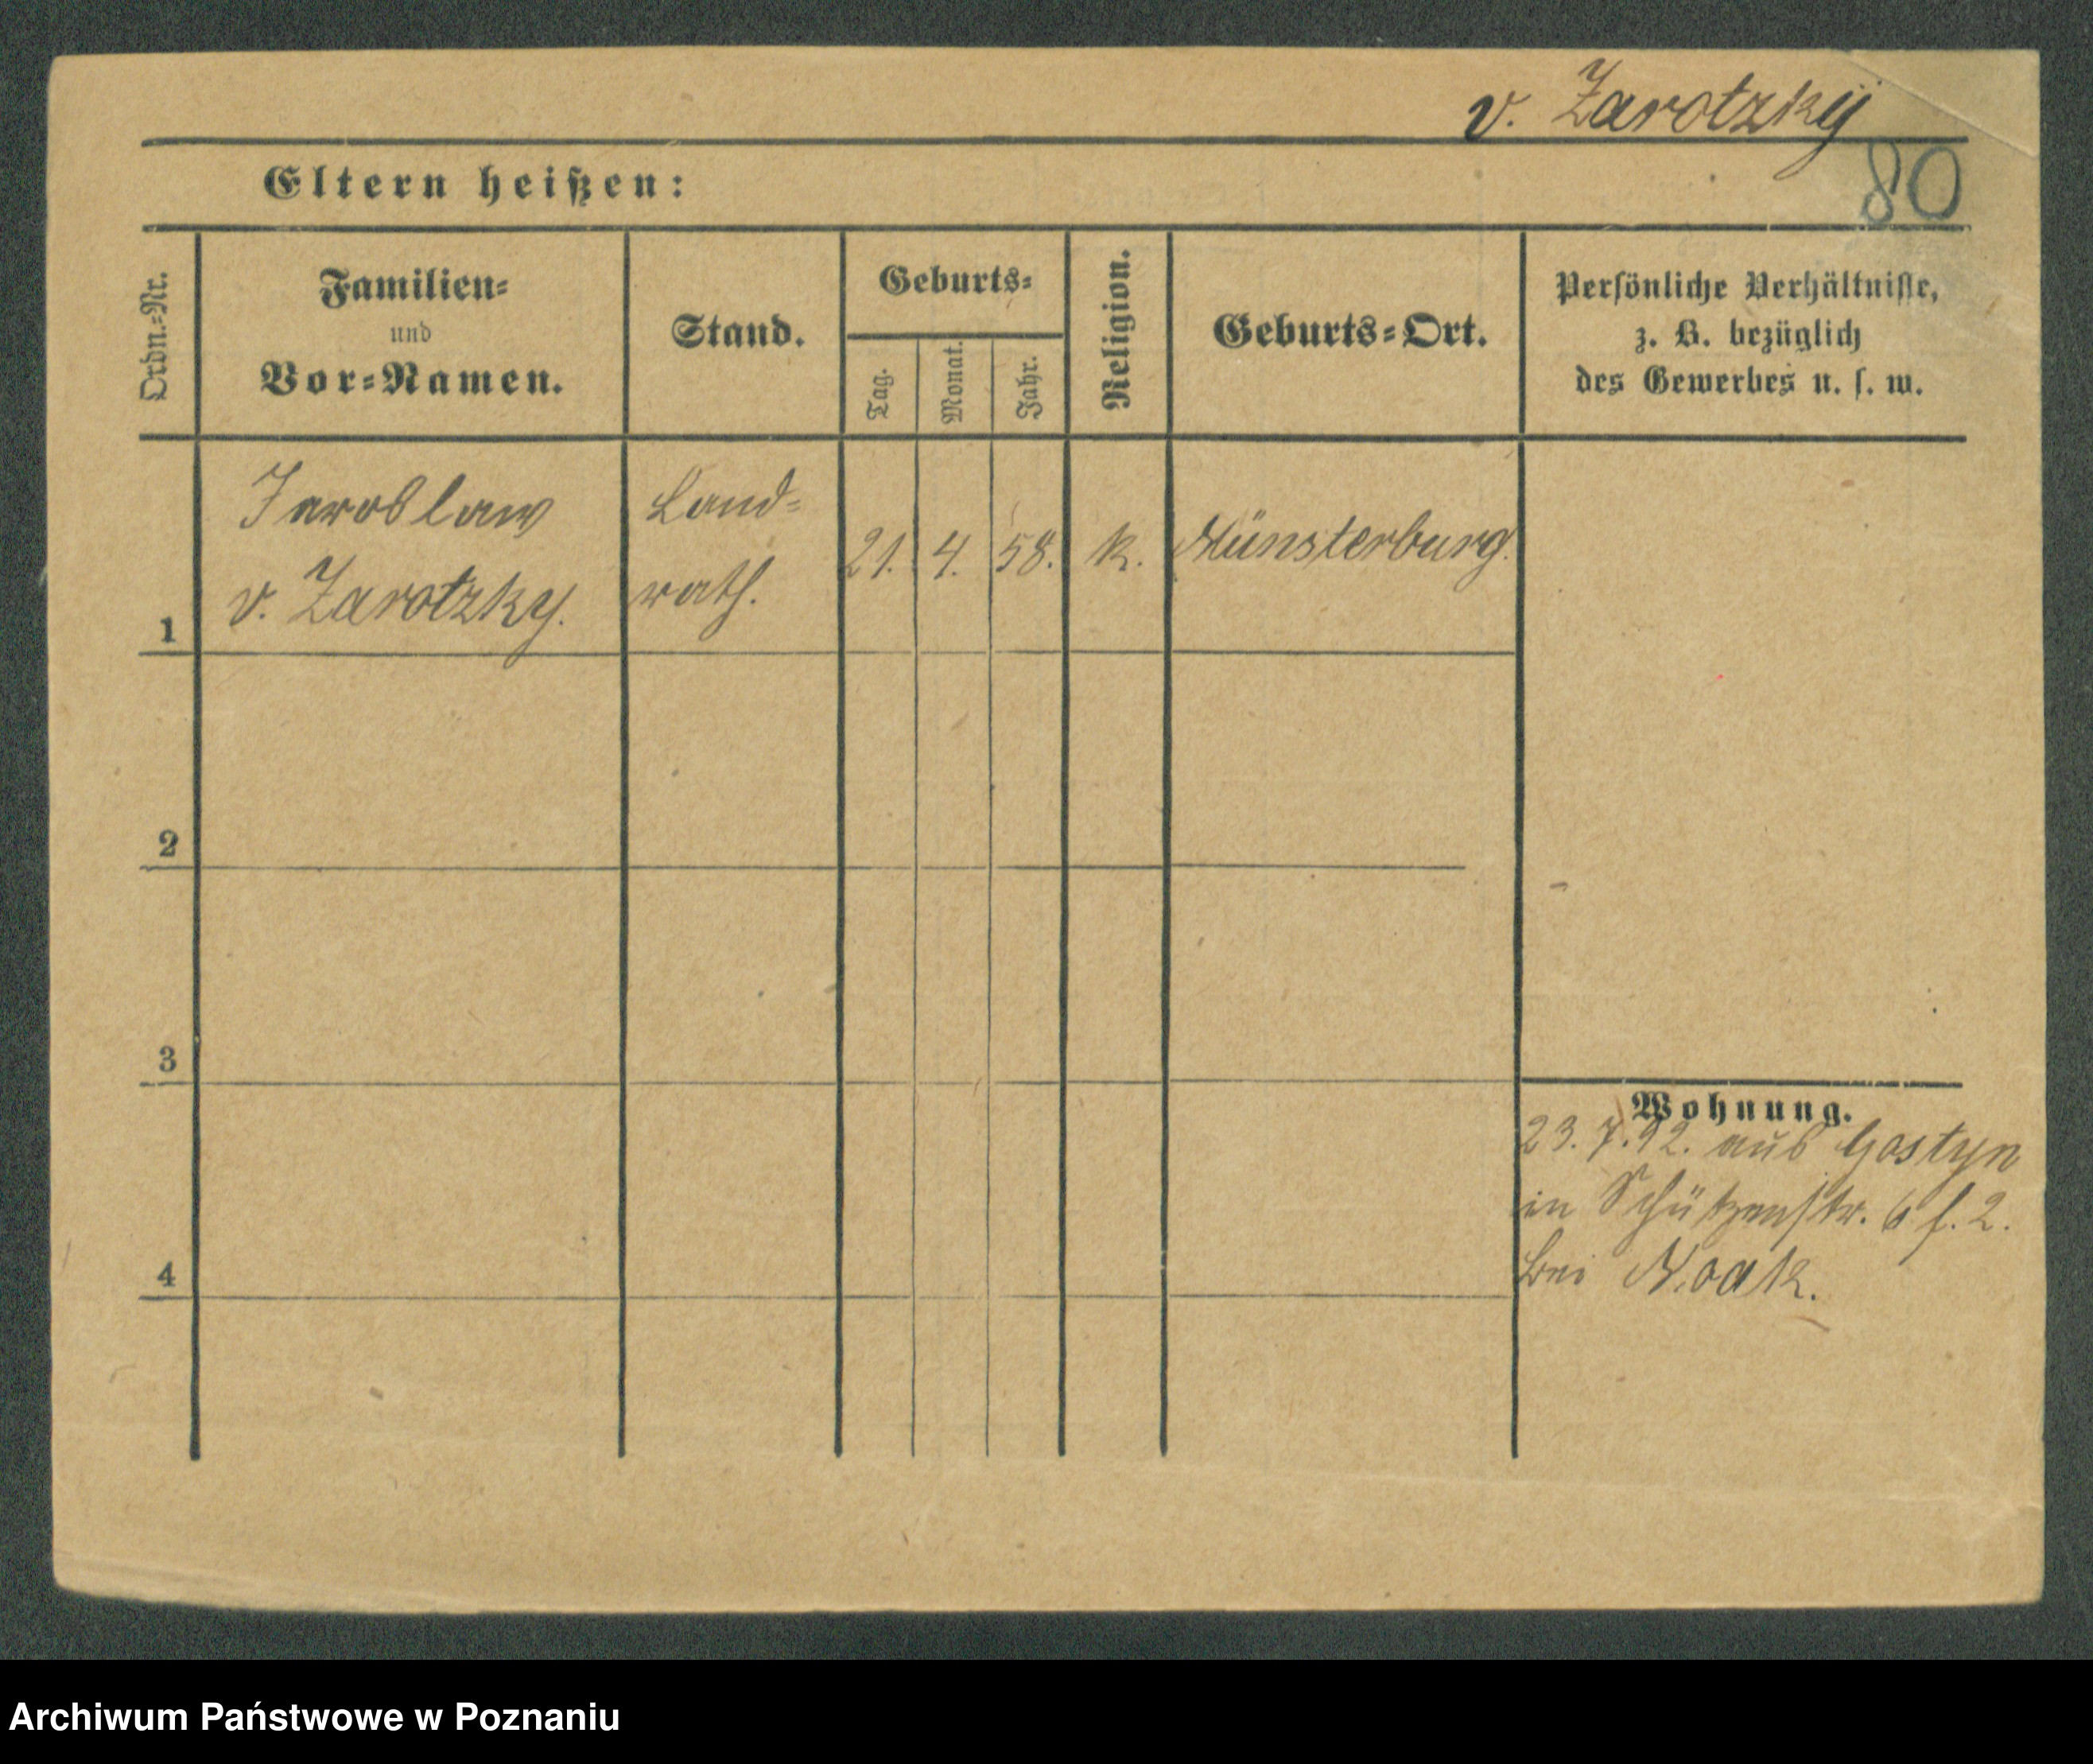 v. Zarotzky
80
Eltern heißen:
Ordn.-Nr.
Familien-
und
Vor-Namen.
Stand.
Geburts-
Tag.
Monat.
Jahr.
Religion.
Geburts-Ort.
Persönliche Verhältnisse,
z. B. bezüglich
des Gewerbes u. s. w.
1
Jaroslaw
v. Zarotzky.
Land-
rath.
21. 4. 58. k. Münsterburg.
2
3
4
Wohnung.
23.7.92. aus Gostyn
in Schützenstr. 6 f. 2.
bei Noak.
Archiwum Państwowe w Poznaniu